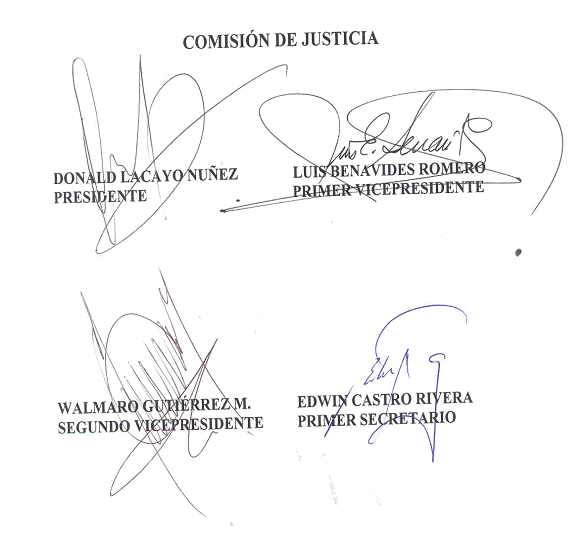 COMISIÓN DE JUSTICIA
DONALD LACAYO NUÑEZ
PRESIDENTE
Luis E. Benavid
LUIS BENAVIDES ROMERO
PRIMER VICEPRESIDENTE
WALMARO GUTIÉRREZ M.
SEGUNDO VICEPRESIDENTE
EDWIN CASTRO RIVERA
PRIMER SECRETARIO